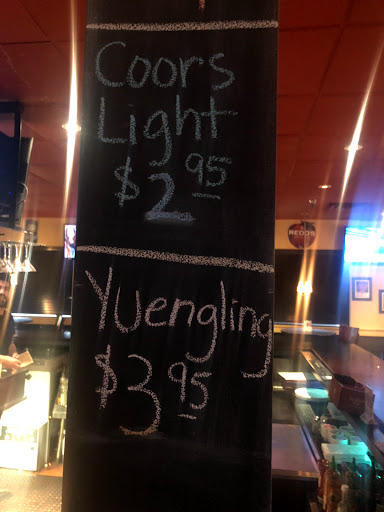 95
Coors
Light
$2.95
YUengling
$3.95
REDD'S